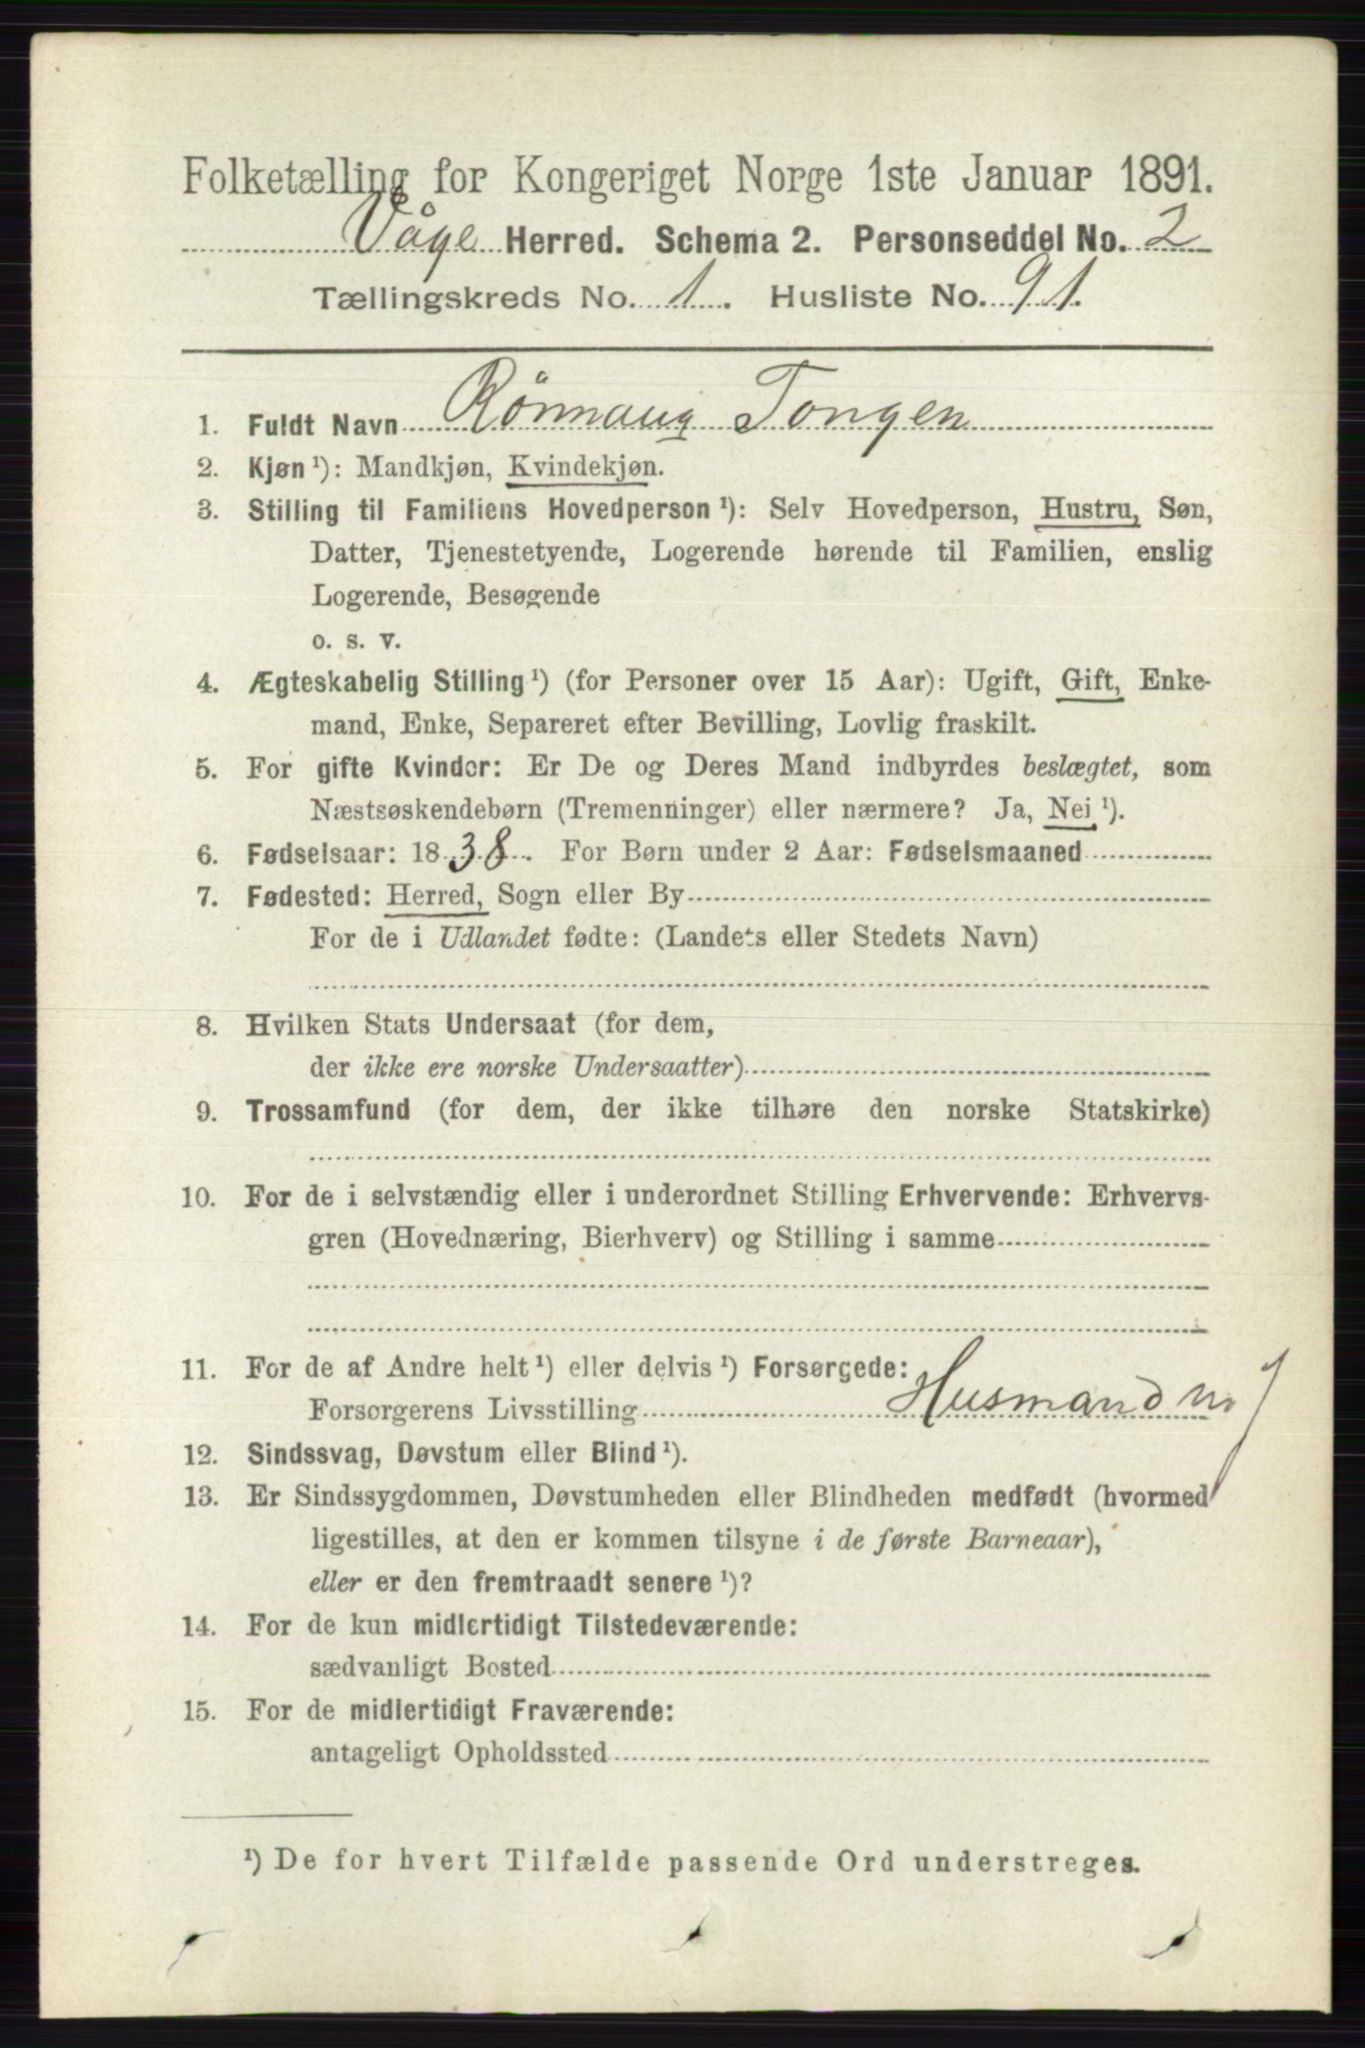 Folketælling for Kongeriget Norge 1ste Januar 1891.
Våge Herred. Schema 2. Personseddel No. 2
Tællingskreds No. 1. Husliste No. 91.
1. Fuldt Navn Rönnaug Tongen
2. Kjøn ¹): Mandkjøn, Kvindekjøn.
3. Stilling til Familiens Hovedperson ¹): Selv Hovedperson, Hustru, Søn,
Datter, Tjenestetyende, Logerende hørende til Familien, enslig
Logerende, Besøgende
o. s. v.
4. Ægteskabelig Stilling ¹) (for Personer over 15 Aar): Ugift, Gift, Enke-
mand, Enke, Separeret efter Bevilling, Lovlig fraskilt.
5. For gifte Kvinder: Er De og Deres Mand indbyrdes beslægtet, som
Næstsøskendebørn (Tremenninger) eller nærmere? Ja, Nei ¹).
6. Fødselsaar: 1838. For Børn under 2 Aar: Fødselsmaaned
7. Fødested: Herred, Sogn eller By
For de i Udlandet fødte: (Landets eller Stedets Navn)
8. Hvilken Stats Undersaat (for dem,
der ikke ere norske Undersaatter)
9. Trossamfund (for dem, der ikke tilhøre den norske Statskirke)
10. For de i selvstændig eller i underordnet Stilling Erhvervende: Erhvervs-
gren (Hovednæring, Bierhverv) og Stilling i samme
11. For de af Andre helt ¹) eller delvis ¹) Forsørgede:
Forsørgerens Livsstilling Husmand m j
12. Sindssvag, Døvstum eller Blind ¹).
13. Er Sindssygdommen, Døvstumheden eller Blindheden medfødt (hvormed
ligestilles, at den er kommen tilsyne i de første Barneaar),
eller er den fremtraadt senere ¹)?
14. For de kun midlertidigt Tilstedeværende:
sædvanligt Bosted
15. For de midlertidigt Fraværende:
antageligt Opholdssted
¹) De for hvert Tilfælde passende Ord understreges.